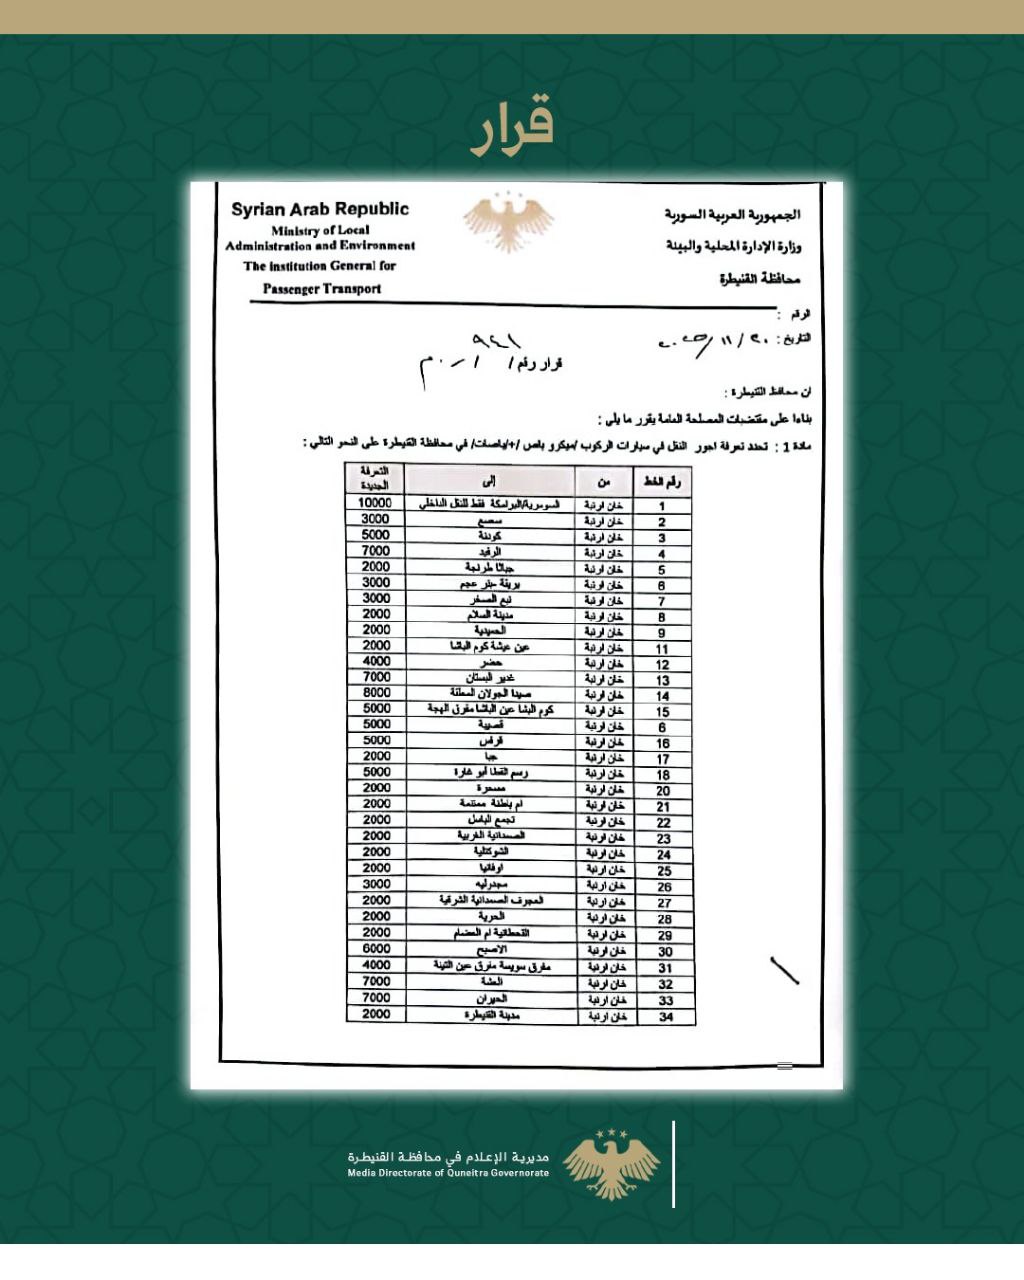 قرار
الجمهورية العربية السورية
وزارة الإدارة المحلية والبيئة
محافظة القنيطرة
Syrian Arab Republic
Ministry of Local
Administration and Environment
The institution General for
Passenger Transport
الرقم :
التاريخ : ٢٠٢٥/١١/٢٠
قرار رقم / ٩٤١ / - م.ن
ان محافظ القنيطرة :
بناءا على مقتضيات المصلحة العامة يقرر ما يلي :
مادة 1 : تحدد تعرفة اجور النقل في سيارات الركوب /ميكرو باص /+/باصات/ في محافظة القنيطرة على النحو التالي :
رقم الخط من إلى التعرفة الجديدة
1 خان ارنبة السومرية/البرامكة فقط للنقل الداخلي 10000
2 خان ارنبة سعسع 3000
3 خان ارنبة كودنة 5000
4 خان ارنبة الرفيد 7000
5 خان ارنبة جباثا طرنجة 2000
6 خان ارنبة بريقة بئر عجم 3000
7 خان ارنبة نبع الصخر 3000
8 خان ارنبة مدينة السلام 2000
9 خان ارنبة الحميدية 2000
11 خان ارنبة عين عيشة كوم الباشا 2000
12 خان ارنبة حضر 4000
13 خان ارنبة غدير البستان 7000
14 خان ارنبة صيدا الجولان المعلقة 8000
15 خان ارنبة كوم البشا عين الباشا مفرق الهجة 5000
6 خان ارنبة قصيبة 5000
16 خان ارنبة قرقس 5000
17 خان ارنبة جبا 2000
18 خان ارنبة رسم القطا أبو غارة 5000
20 خان ارنبة مسحرة 2000
21 خان ارنبة ام باطنة ممتنة 2000
22 خان ارنبة تجمع الباسل 2000
23 خان ارنبة الصمدانية الغربية 2000
24 خان ارنبة الشوكتلية 2000
25 خان ارنبة اوفانيا 2000
26 خان ارنبة مجدوليه 3000
27 خان ارنبة العجرف الصمدانية الشرقية 2000
28 خان ارنبة الحرية 2000
29 خان ارنبة القحطانية ام العضام 2000
30 خان ارنبة الاصبح 6000
31 خان ارنبة مفرق سويسة مفرق عين التينة 4000
32 خان ارنبة العشة 7000
33 خان ارنبة الحيران 7000
34 خان ارنبة مدينة القنيطرة 2000
مديرية الإعلام في محافظة القنيطرة
Media Directorate of Quneitra Governorate